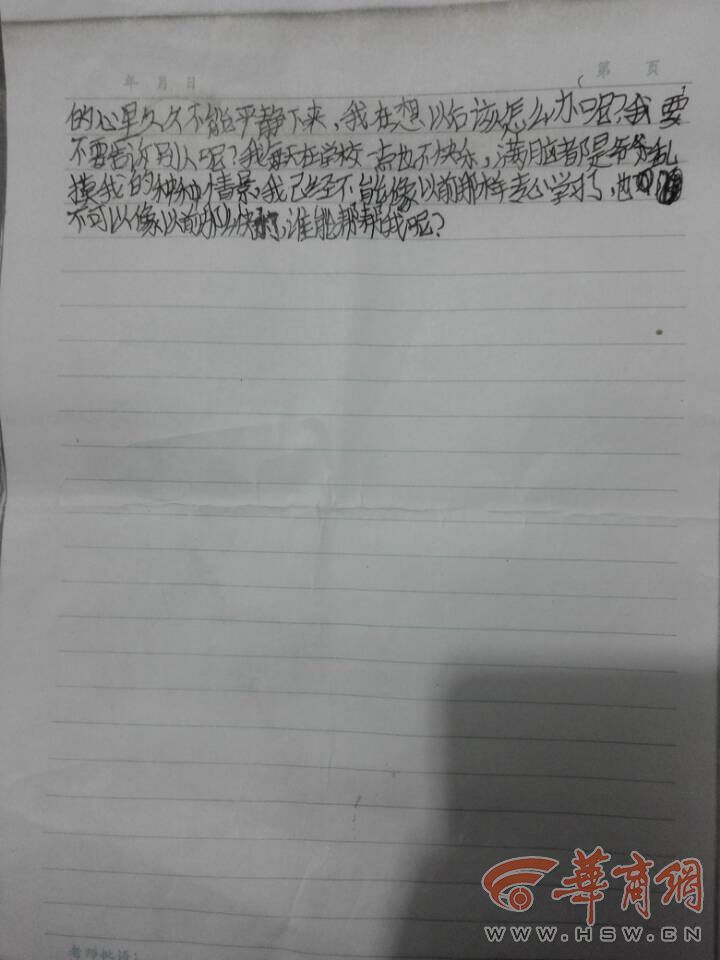 年 月 日
第 页
的心早久久不能平静下来,我在想以后该怎么办呢?我要
不要告诉别人呢?我每天在学校一点也不快乐,满脑都是爷爷乱
摸我的种种情景,我已经不能像以前那样专心学习了,也
不可以像以前那么快了,谁能帮帮我呢?
老师批语:
华商网
WWW.HSW.CN